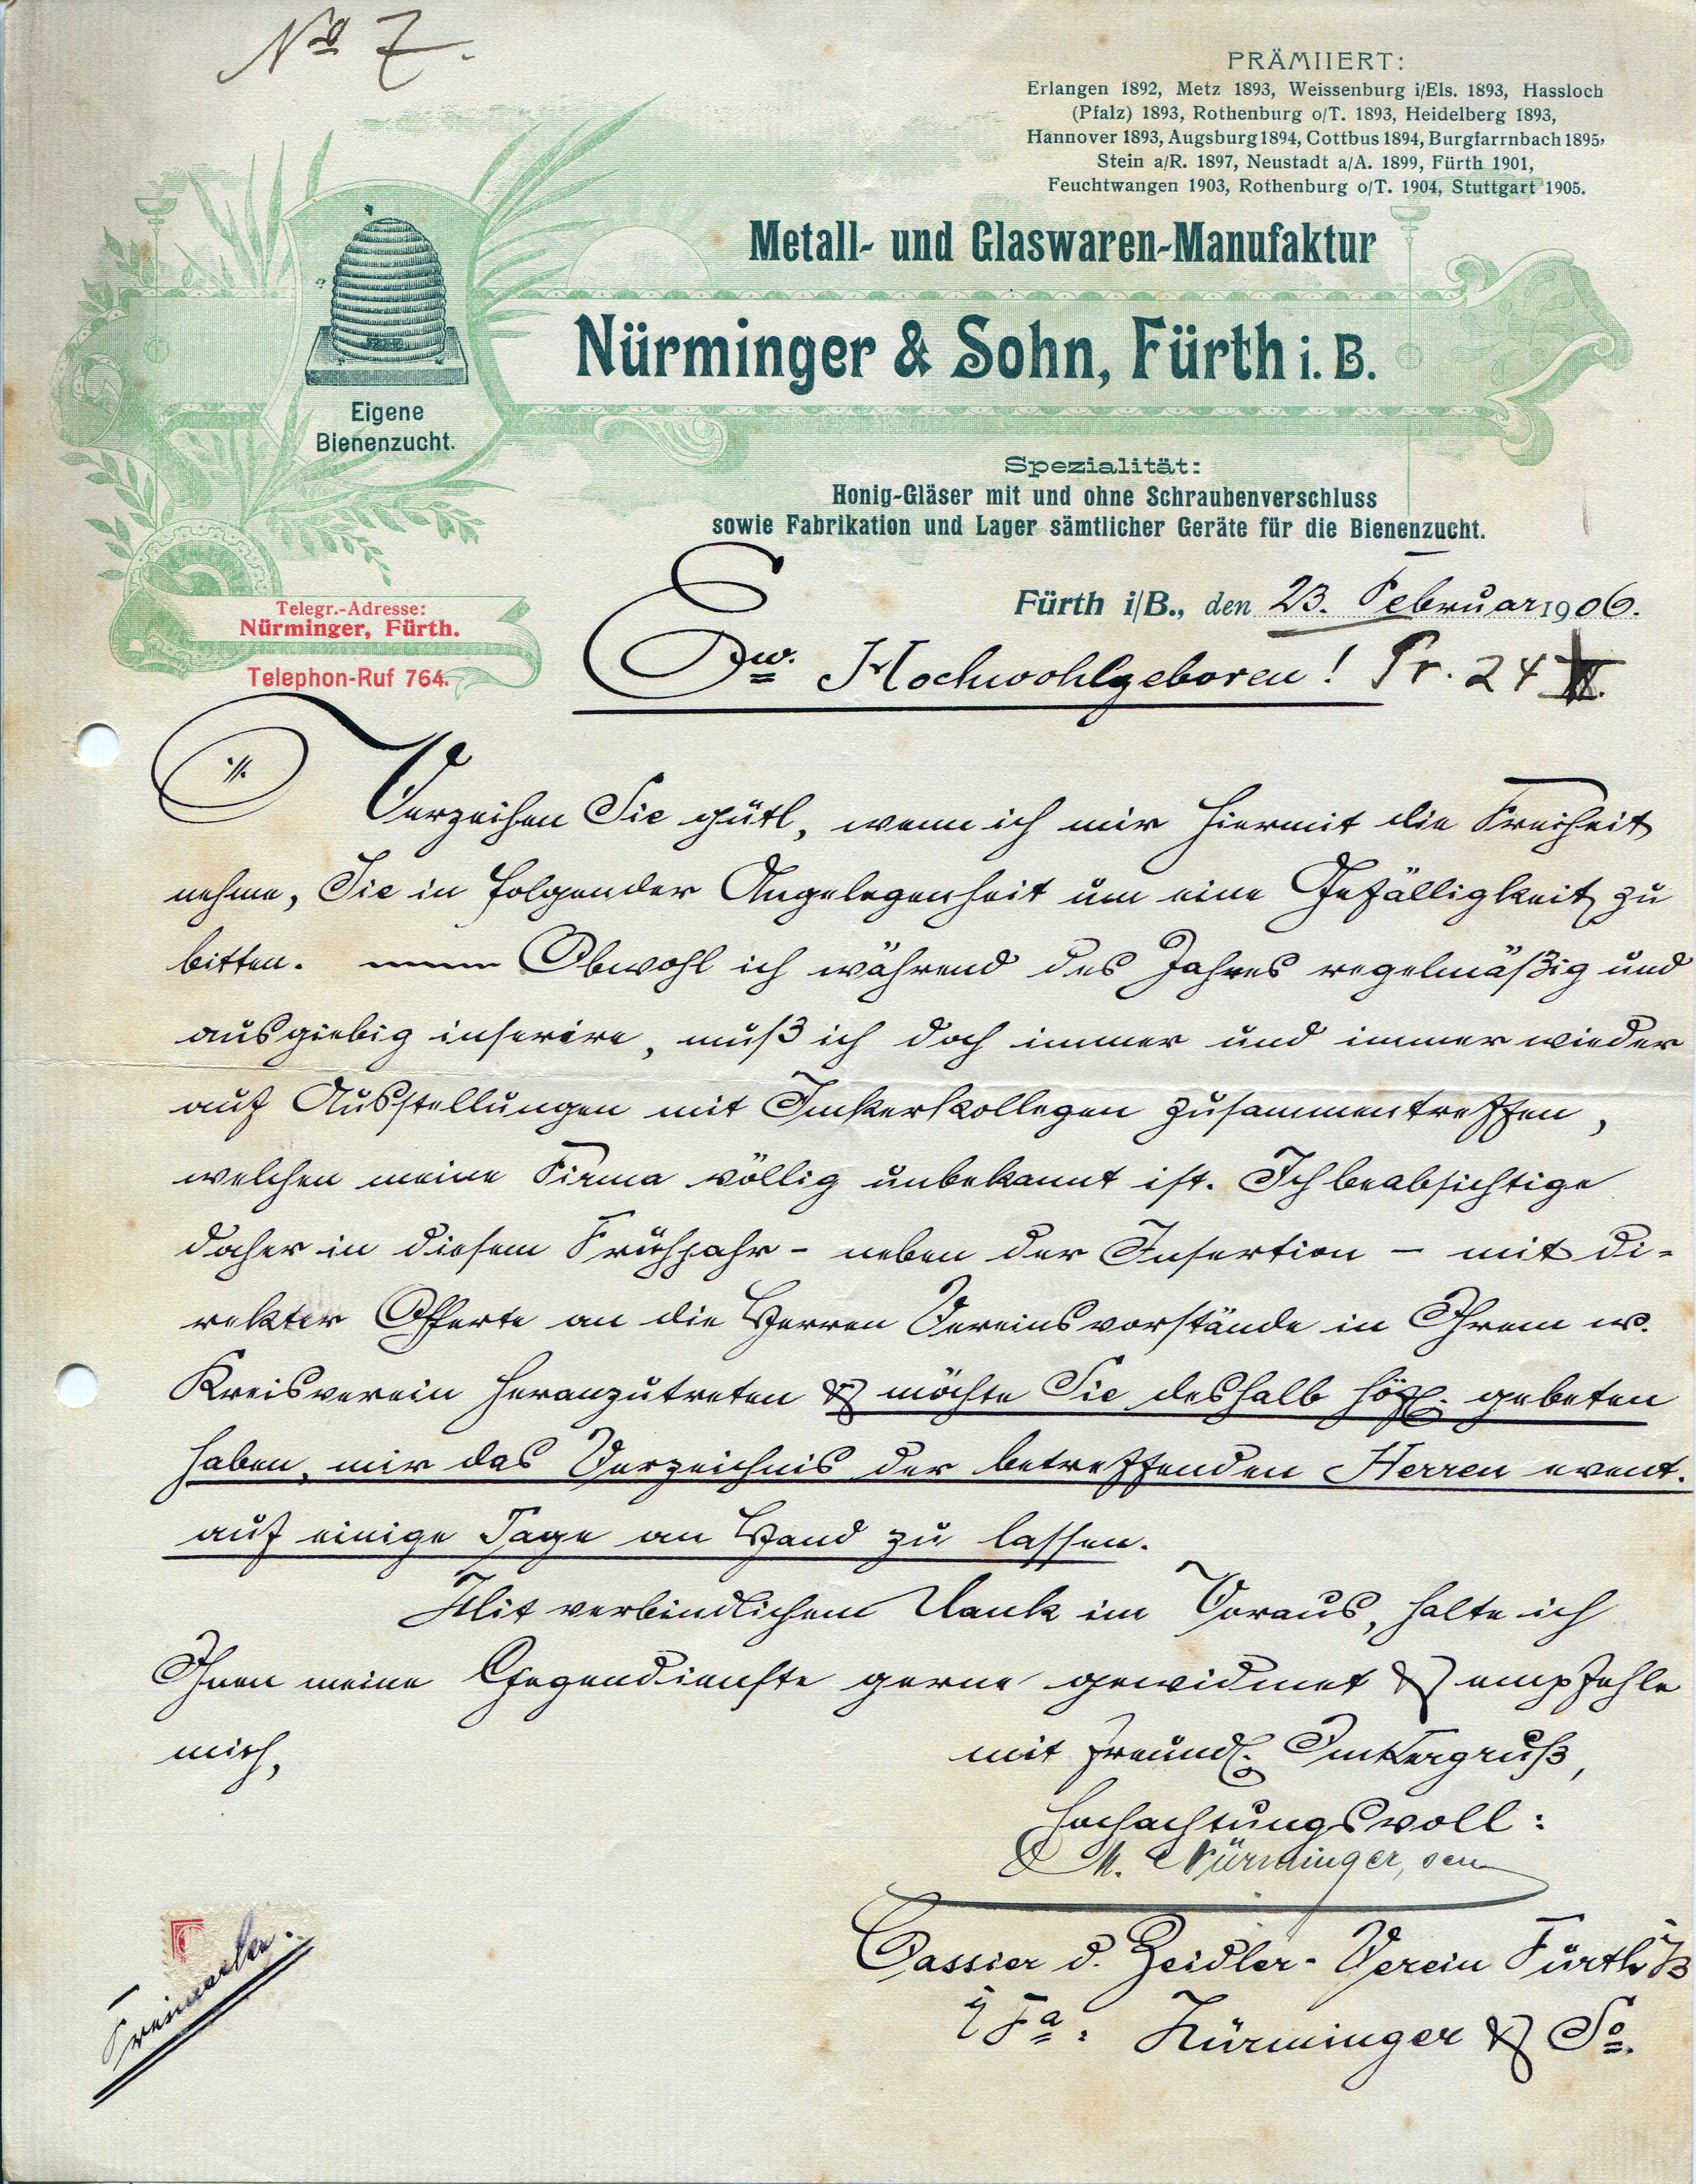 No 7.
PRÄMIIERT:
Erlangen 1892, Metz 1893, Weissenburg i/Els. 1893, Hassloch
(Pfalz) 1893, Rothenburg o/T. 1893, Heidelberg 1893,
Hannover 1893, Augsburg 1894, Cottbus 1894, Burgfarrnbach 1895,
Stein a/R. 1897, Neustadt a/A. 1899, Fürth 1901,
Feuchtwangen 1903, Rothenburg o/T. 1904, Stuttgart 1905.
Metall- und Glaswaren-Manufaktur
Nürminger & Sohn, Fürth i. B.
Eigene
Bienenzucht.
Spezialität:
Honig-Gläser mit und ohne Schraubenverschluss
sowie Fabrikation und Lager sämtlicher Geräte für die Bienenzucht.
Telegr.-Adresse:
Nürminger, Fürth.
Telephon-Ruf 764.
Fürth i/B., den 23. Februar 1906.
Ew. Hochwohlgeboren! Pr. 24
Verzeihen Sie gütl, wenn ich mir hiermit die Freiheit
nehme, Sie in folgender Angelegenheit um eine Gefälligkeit zu
bitten. Obwohl ich während des Jahres regelmäßig und
ausgiebig inserire, muß ich doch immer und immer wieder
auf Ausstellungen mit Imkerkollegen zusammentreffen,
welchen meine Firma völlig unbekannt ist. Ich beabsichtige
daher in diesem Frühjahr - neben der Insertion - mit di-
rekter Offerte an die Herren Vereinsvorstände in Ihrem w.
Kreisverein heranzutreten & möchte Sie deshalb höfl. gebeten
haben, mir das Verzeichnis der betreffenden Herren event.
auf einige Tage an Hand zu lassen.
Mit verbindlichem Dank im Voraus, halte ich
Ihnen meine Gegendienste gerne gewidmet & empfehle
mich,
mit freundl. Imkergruß,
hochachtungsvoll:
M. Nürminger, sen
Cassier d. Zeidler-Verein Fürth i/B
i/Fa: Nürminger & So.
Freimarke.